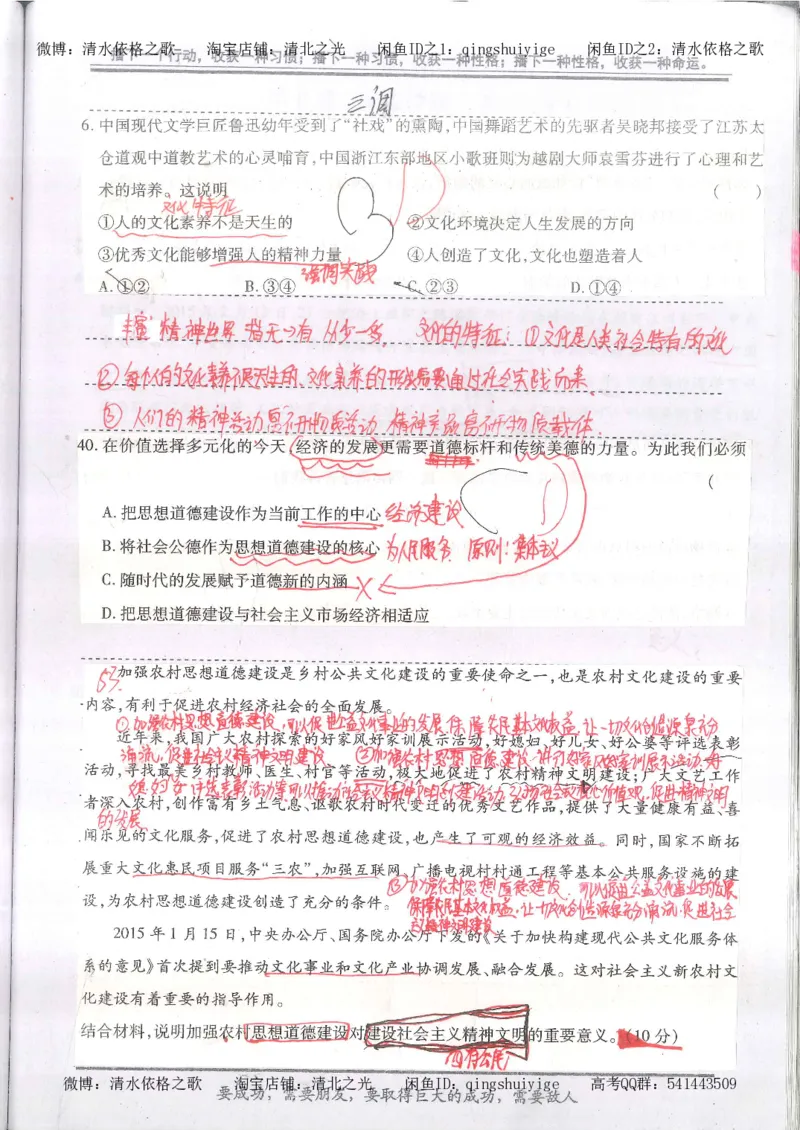 微博：清水依格之歌　淘宝店铺：清北之光　闲鱼ID之1：qingshuiyige　闲鱼ID之2：清水依格之歌
播下一个行动，收获一种习惯；播下一种习惯，收获一种性格；播下一种性格，收获一种命运。
三调
6. 中国现代文学巨匠鲁迅幼年受到了“社戏”的熏陶,中国舞蹈艺术的先驱者吴晓邦接受了江苏太
仓道观中道教艺术的心灵哺育,中国浙江东部地区小歌班则为越剧大师袁雪芬进行了心理和艺
术的培养。这说明 ( )
文化特征
①人的文化素养不是天生的 ②文化环境决定人生发展的方向
③优秀文化能够增强人的精神力量 ④人创造了文化,文化也塑造着人
强调实践
A.①② B.③④ C.②③ D.①④
丰富精神世界 指无→有 从少→多。 文化的特征：①文化是人类社会特有的文化
②每个人的文化素养不是天生的，文化素养的形成需要通过社会实践而来
③人们的精神活动离不开物质活动，精神产品离不开物质载体.
40. 在价值选择多元化的今天,经济的发展更需要道德标杆和传统美德的力量。为此我们必须
(
A. 把思想道德建设作为当前工作的中心 经济建设
B. 将社会公德作为思想道德建设的核心 为人民服务 原则：集体主义
C. 随时代的发展赋予道德新的内涵
D. 把思想道德建设与社会主义市场经济相适应
加强农村思想道德建设是乡村公共文化建设的重要使命之一,也是农村文化建设的重要
内容,有利于促进农村经济社会的全面发展。
①加强农村思想道德建设,可以促进公益文化事业的发展,保障人民基本文化权益,让一切文化创造源泉充分
近年来,我国广大农村探索的好家风好家训展示活动,好媳妇、好儿女、好公婆等评选表彰
涌流，促进社会主义精神文明建设
活动,寻找最美乡村教师、医生、村官等活动,极大地促进了农村精神文明建设；广大文艺工作
者深入农村,创作富有乡土气息、讴歌农村时代变迁的优秀文艺作品,提供了大量健康有益、喜
的发展
闻乐见的文化服务,促进了农村思想道德建设,也产生了可观的经济效益。同时,国家不断拓
展重大文化惠民项目服务“三农”,加强互联网、广播电视村村通工程等基本公共服务设施的建
③加强农村思想道德建设，可以促进公益文化事业的发展
设,为农村思想道德建设创造了充分的条件。
保障人民基本文化权益,让一切文化创造源泉充分涌流,促进社会
主义精神文明建设
2015 年 1 月 15 日,中央办公厅、国务院办公厅下发的《关于加快构建现代公共文化服务体
系的意见》首次提到要推动文化事业和文化产业协调发展、融合发展。这对社会主义新农村文
化建设有着重要的指导作用。
结合材料,说明加强农村思想道德建设对建设社会主义精神文明的重要意义。(10 分)
四有公民
微博：清水依格之歌　淘宝店铺：清北之光　闲鱼ID：qingshuiyige　高考QQ群：541443509
要成功，需要朋友，要取得巨大的成功，需要敌人